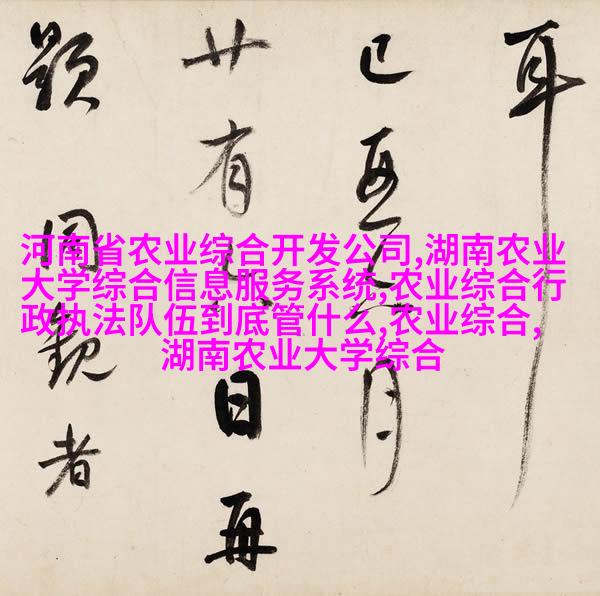 耳
月
廿有日再
題同觀者
河南省农业综合开发公司,湖南农业
大学综合信息服务系统,农业综合行
政执法队伍到底管什么,农业综合,
湖南农业大学综合